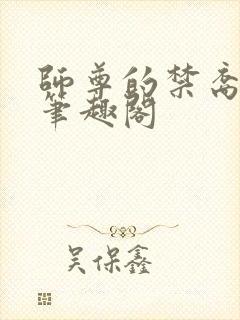 師尊的禁臠
筆趣閣
吳保鑫